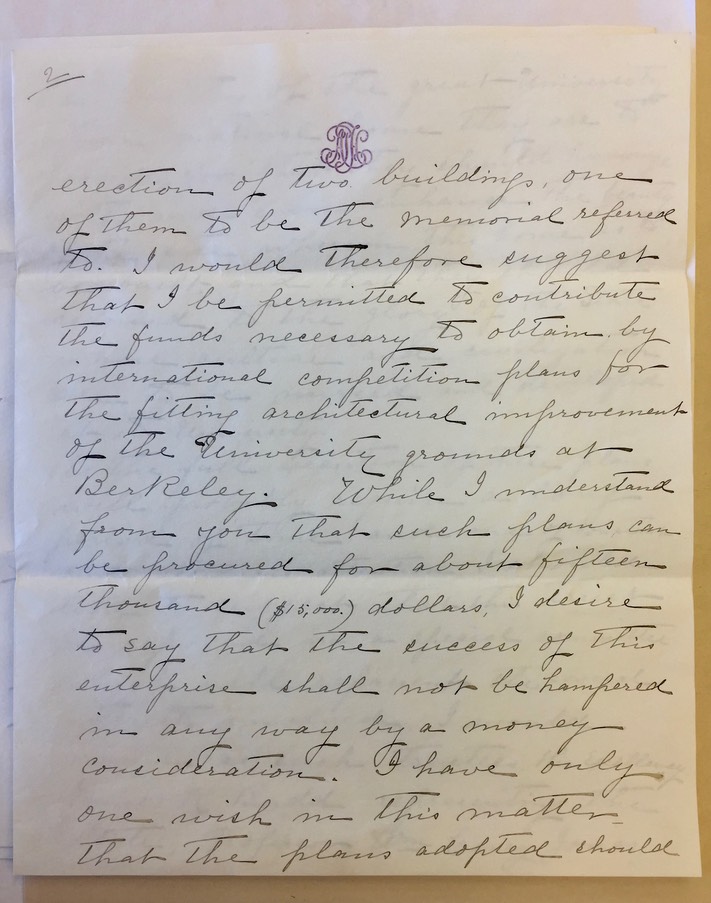 2
erection of two buildings, one
of them to be the memorial referred
to. I would therefore suggest
that I be permitted to contribute
the funds necessary to obtain by
international competition plans for
the fitting architectural improvement
of the University grounds at
Berkeley. While I understand
from you that such plans can
be procured for about fifteen
thousand ($15,000.) dollars, I desire
to say that the success of this
enterprise shall not be hampered
in any way by a money
consideration. I have only
one wish in this matter –
that the plans adopted should